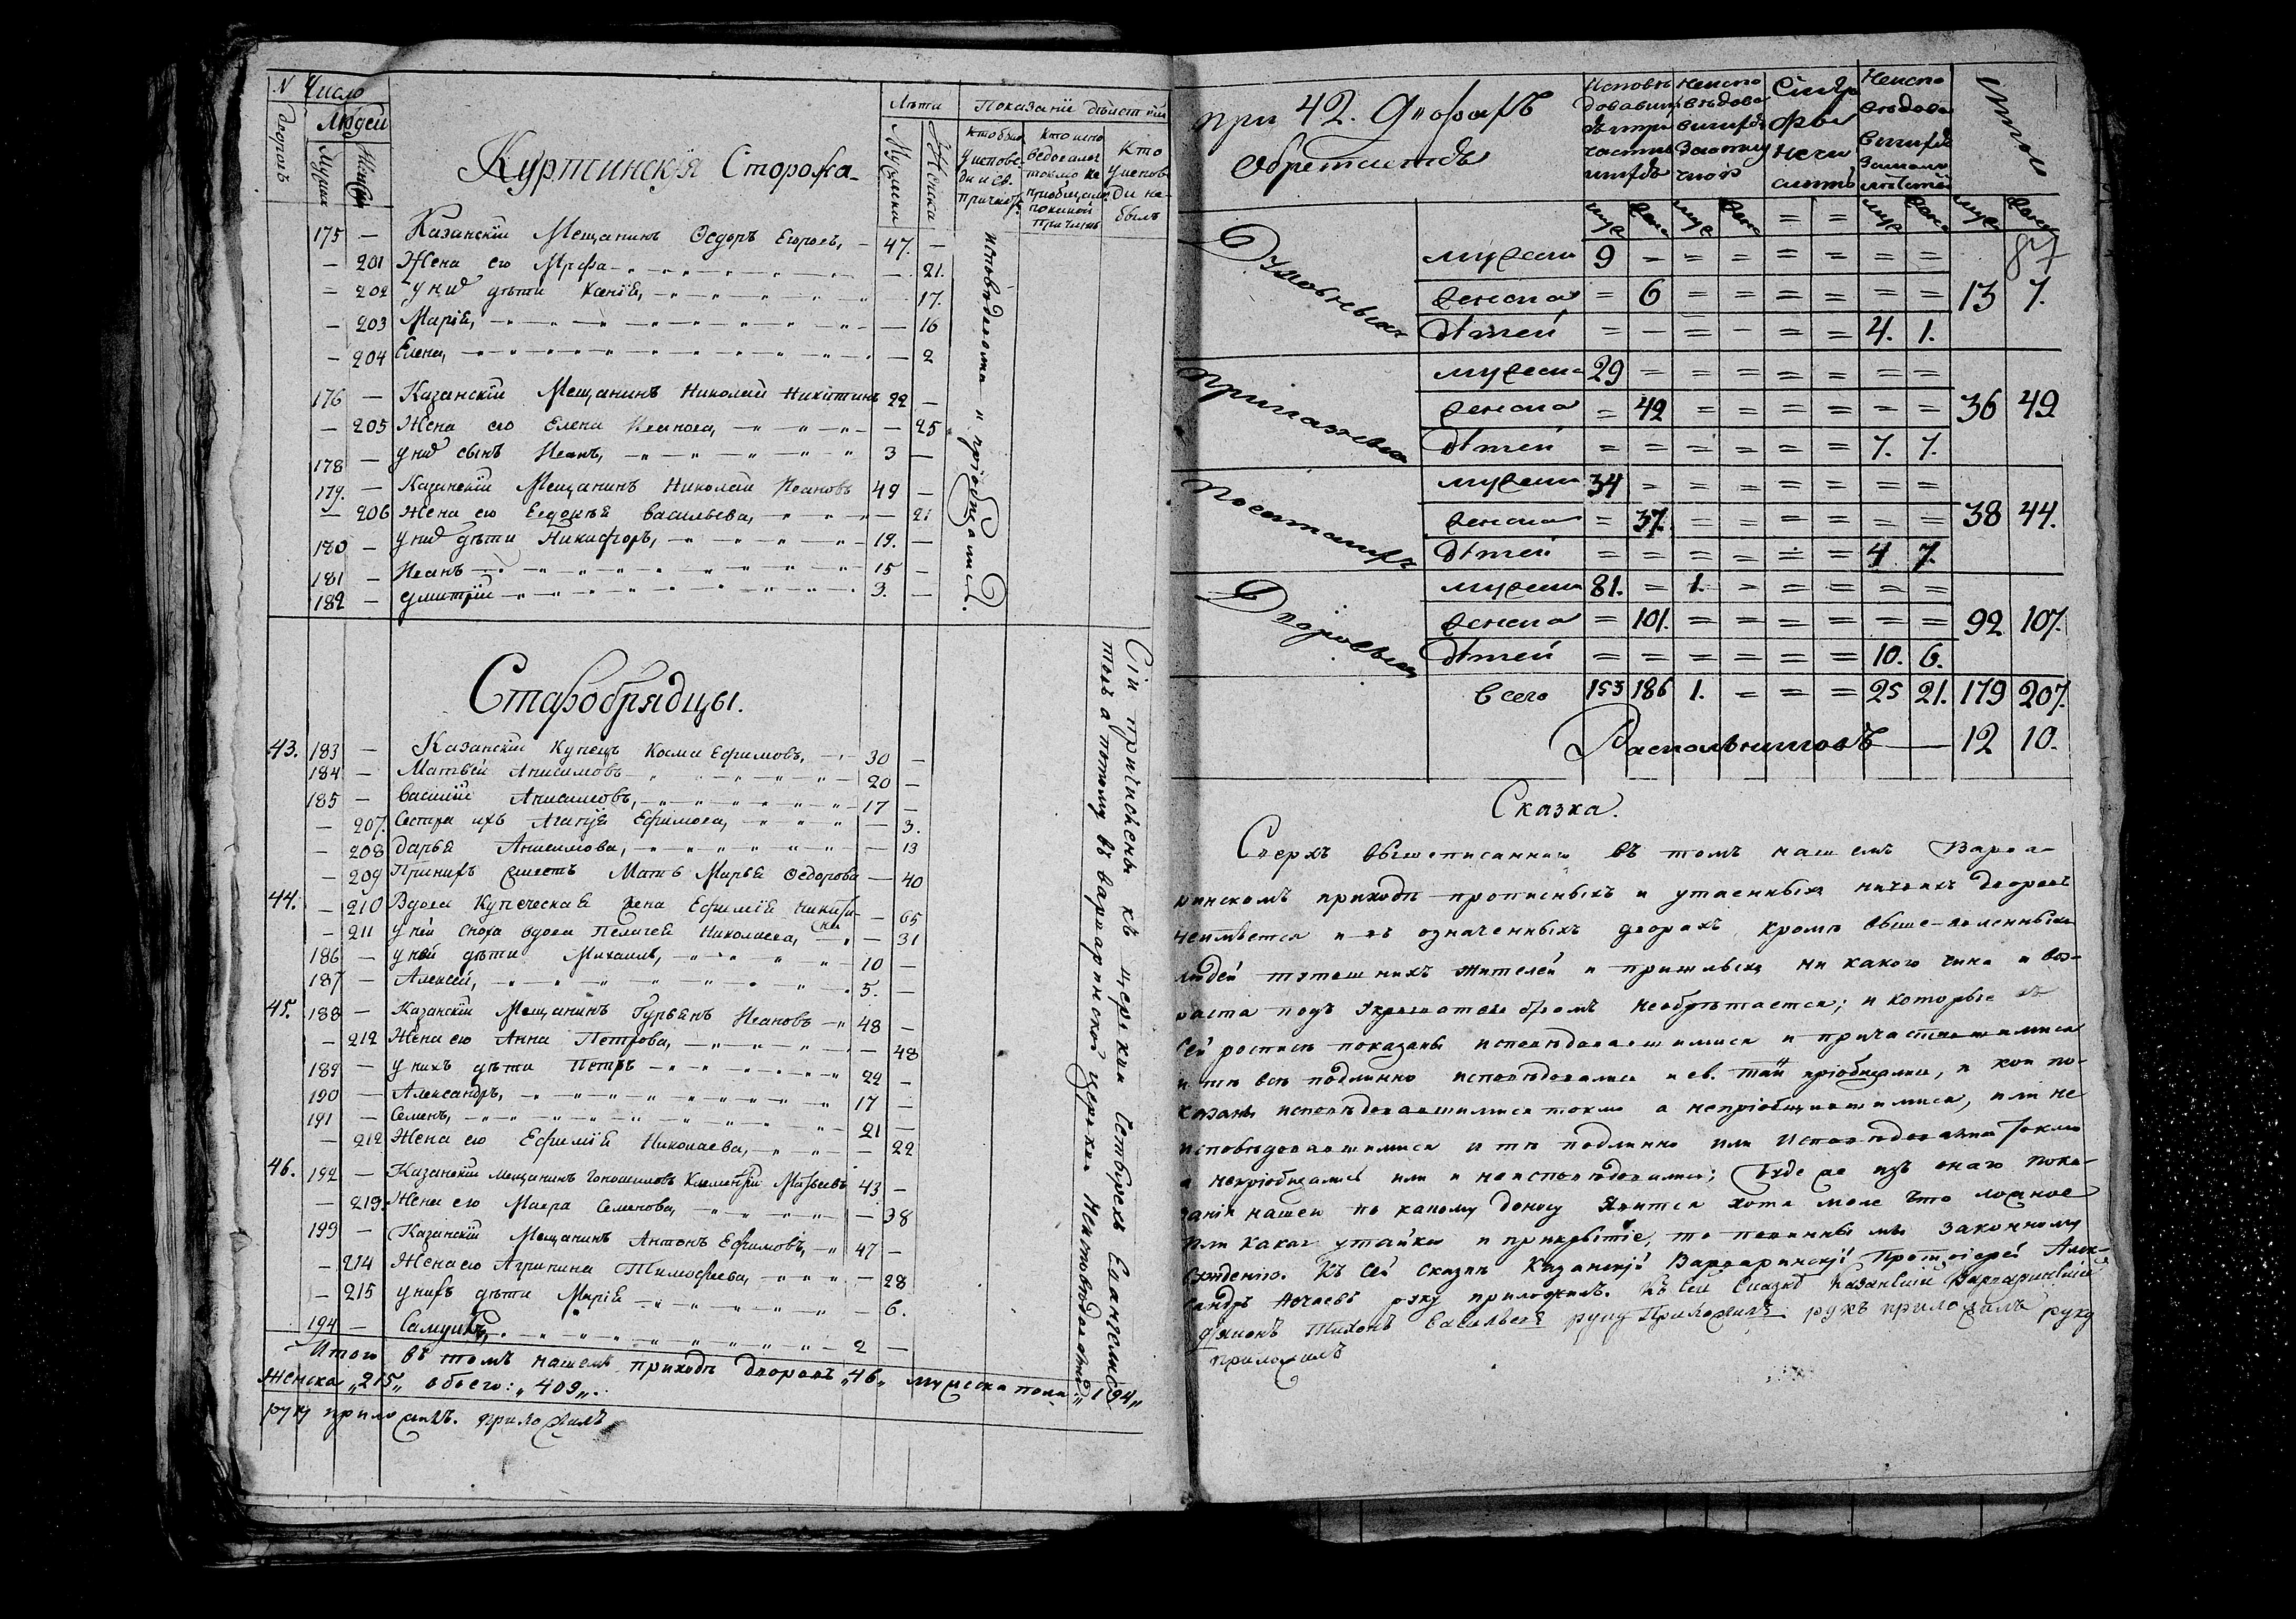 N Число
Людей
дворовъ
Мужска
Женска
Куртинскія Сторожа
Лѣта
Мужска
Женска
Показаніе дѣйствій
Кто былъ у исповеди и св. причастія
Кто исповедовался токмо не пріобщался и по какой причинѣ
Кто у исповеди не былъ
175 — Казанскій Мещанинъ Ѳедоръ Егоровъ, 47. —
— 201 Жена его Марѳа — 21.
— 202 у нихъ дѣти Ксенія, 17.
— 203 Марія, — 16
— 204 Елена, — 2
176 — Казанскій Мещанинъ Николай Никитинъ 22 —
— 205 Жена его Елена Иванова, — 25
178 — у нихъ сынъ Иванъ, 3 —
179. — Казанскій Мещанинъ Николай Ивановъ 49 —
— 206 Жена его Евдокія Васильева, — 21
180 — у нихъ дѣти Никифоръ, 19. —
181 — Иванъ 15 —
182 — Дмитрій 3. —
исповѣдалота и пріобщались.
Старобрядцы.
43. 183 — Казанскій Купецъ Косма Ефимовъ, 30 —
184 — Матвей Анисимовъ 20 —
185 — Василій Анисимовъ, 17 —
— 207. Сестра ихъ Агапія Ефимова, — 3.
— 208 Дарья Анисимова, — 13
— 209 При нихъ вместѣ Мать Марья Ѳедорова — 40
44. — 210 Вдова Купеческая жена Ефимія — 65
— 211 у ней сноха вдова Пелагея Николаева, — 31
186 — у ней дѣти Михаилъ, 10 —
187 — Алексей, 5. —
45. 188 — Казанскій Мещанинъ Гурьянъ Ивановъ 48 —
— 212 Жена его Анна Петрова, — 48
189 — у нихъ дѣти Петръ 22 —
190 — Александръ, 17 —
191 — Семенъ, 21 —
— 212 Жена его Ефимія Николаева, — 22
46. 192 — Казанскій мещанинъ Климентій Матвеевъ 43 —
— 213 Жена его Мавра Семенова, — 38
193 — Казанскій Мещанинъ Антонъ Ефимовъ, 47 —
— 214 Жена его Агрипина Тимофеева, — 28
— 215 у нихъ дѣти Марія — 6.
194 — Самуилъ, 2 —
Сіи приписаны къ церкви Четырехъ Евангелистовъ
а потому въ варваринской церкви неисповѣдовались
Итого въ томъ нашемъ приходѣ дворовъ „46„ мужеска пола „194„
Женска „215„ обоего: „409„.
руку приложилъ. приложилъ
при 42. Дворахъ
обретается
87
Итого
муж жен муж жен = = муж жен муж жен
Духовныхъ
мужеска 9 — = = = = = =
женска = 6 = = = = = = 13 7.
дѣтей = — = — = = 4. 1.
Приказныхъ
мужеска 29 = = = = = = =
женска = 42 = = = = = = 36 49
дѣтей = = = = = = 7. 7.
Посатскихъ
мужеска 34 = = = = = = =
женска = 37. = = = = = = 38 44.
дѣтей = = = = = = 4 7.
Дворовыхъ
мужеска 81. = 1. = = = = =
женска = 101. = = = = = = 92 107.
дѣтей = = = = = = 10. 6.
Всего 153 186 1. = = = 25 21. 179 207.
Раскольниковъ — 12 10.
Сказка.
Сверхъ вышеписаннаго въ томъ нашемъ Варва-
ринскомъ приходѣ прописныхъ и утаенныхъ никакихъ дворовъ
неимѣется и въ означенныхъ дворахъ кромѣ выше-явленныхъ
людей тутошнихъ жителей и пришлыхъ ни какого чина и воз-
раста подъ укрывательствомъ необрѣтается; и которые въ
сей росписи показаны исповѣдовавшимися и причастившимися
и тѣ всѣ подлинно исповѣдовались и св. таи пріобщались, и кои по-
казаны исповѣдовавшимися токмо а непріобщившимися, или не
исповѣдовавшимися и тѣ подлинно или исповѣдовались токмо
а непріобщались или и неисповѣдовались; Буде же изъ онаго пока-
занія нашего по какому доносу явится хотя мало что ложное
или какая утайка и прикрытіе, то повинны мы законному
сужденію. Къ сей сказкѣ Казанскій Варваринскій Протоіерей Алек-
сандръ руку приложилъ. Къ сей сказкѣ Казанскій Варваринскій
Діаконъ Тихонъ Васильевъ руку Приложилъ руку приложилъ руку
приложилъ